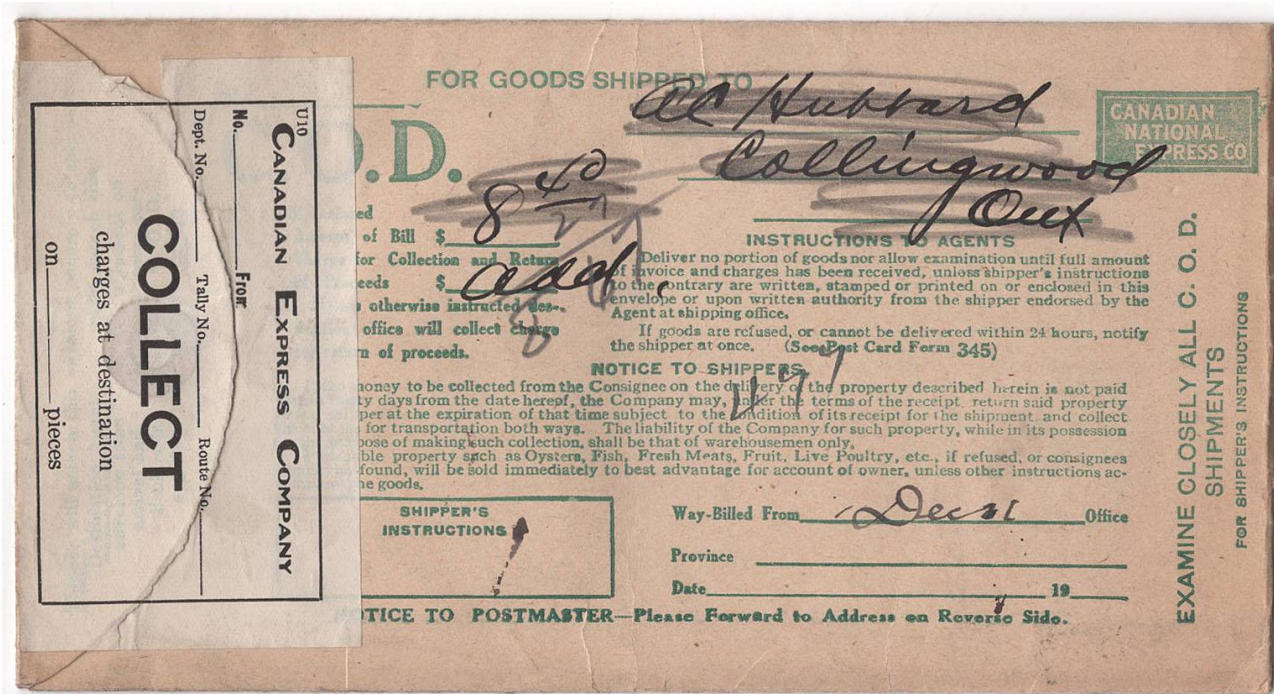 FOR GOODS SHIPPED TO
Hubbard
Collingwood
Ont
CANADIAN
NATIONAL
EXPRESS CO
.D.
8 40
of Bill $
for Collection and Return
$
add.
otherwise instructed des-
office will collect charge
of proceeds.
INSTRUCTIONS TO AGENTS
Deliver no portion of goods nor allow examination until full amount
of invoice and charges has been received, unless shipper's instructions
to the contrary are written, stamped or printed on or enclosed in this
envelope or upon written authority from the shipper endorsed by the
Agent at shipping office.
If goods are refused, or cannot be delivered within 24 hours, notify
the shipper at once. (See Post Card Form 345)
NOTICE TO SHIPPERS
money to be collected from the Consignee on the delivery of the property described herein is not paid
days from the date hereof, the Company may, under the terms of the receipt, return said property
at the expiration of that time subject to the condition of its receipt for the shipment, and collect
for transportation both ways. The liability of the Company for such property, while in its possession
of making such collection, shall be that of warehousemen only.
property such as Oysters, Fish, Fresh Meats, Fruit, Live Poultry, etc., if refused, or consignees
found, will be sold immediately to best advantage for account of owner, unless other instructions ac-
goods.
SHIPPER'S
INSTRUCTIONS
Way-Billed From Office
Province
Date 19
NOTICE TO POSTMASTER—Please Forward to Address on Reverse Side.
EXAMINE CLOSELY ALL C. O. D.
SHIPMENTS
FOR SHIPPER'S INSTRUCTIONS
U10
CANADIAN EXPRESS COMPANY
No. From
Dept. No. Tally No. Route No.
COLLECT
charges at destination
on pieces